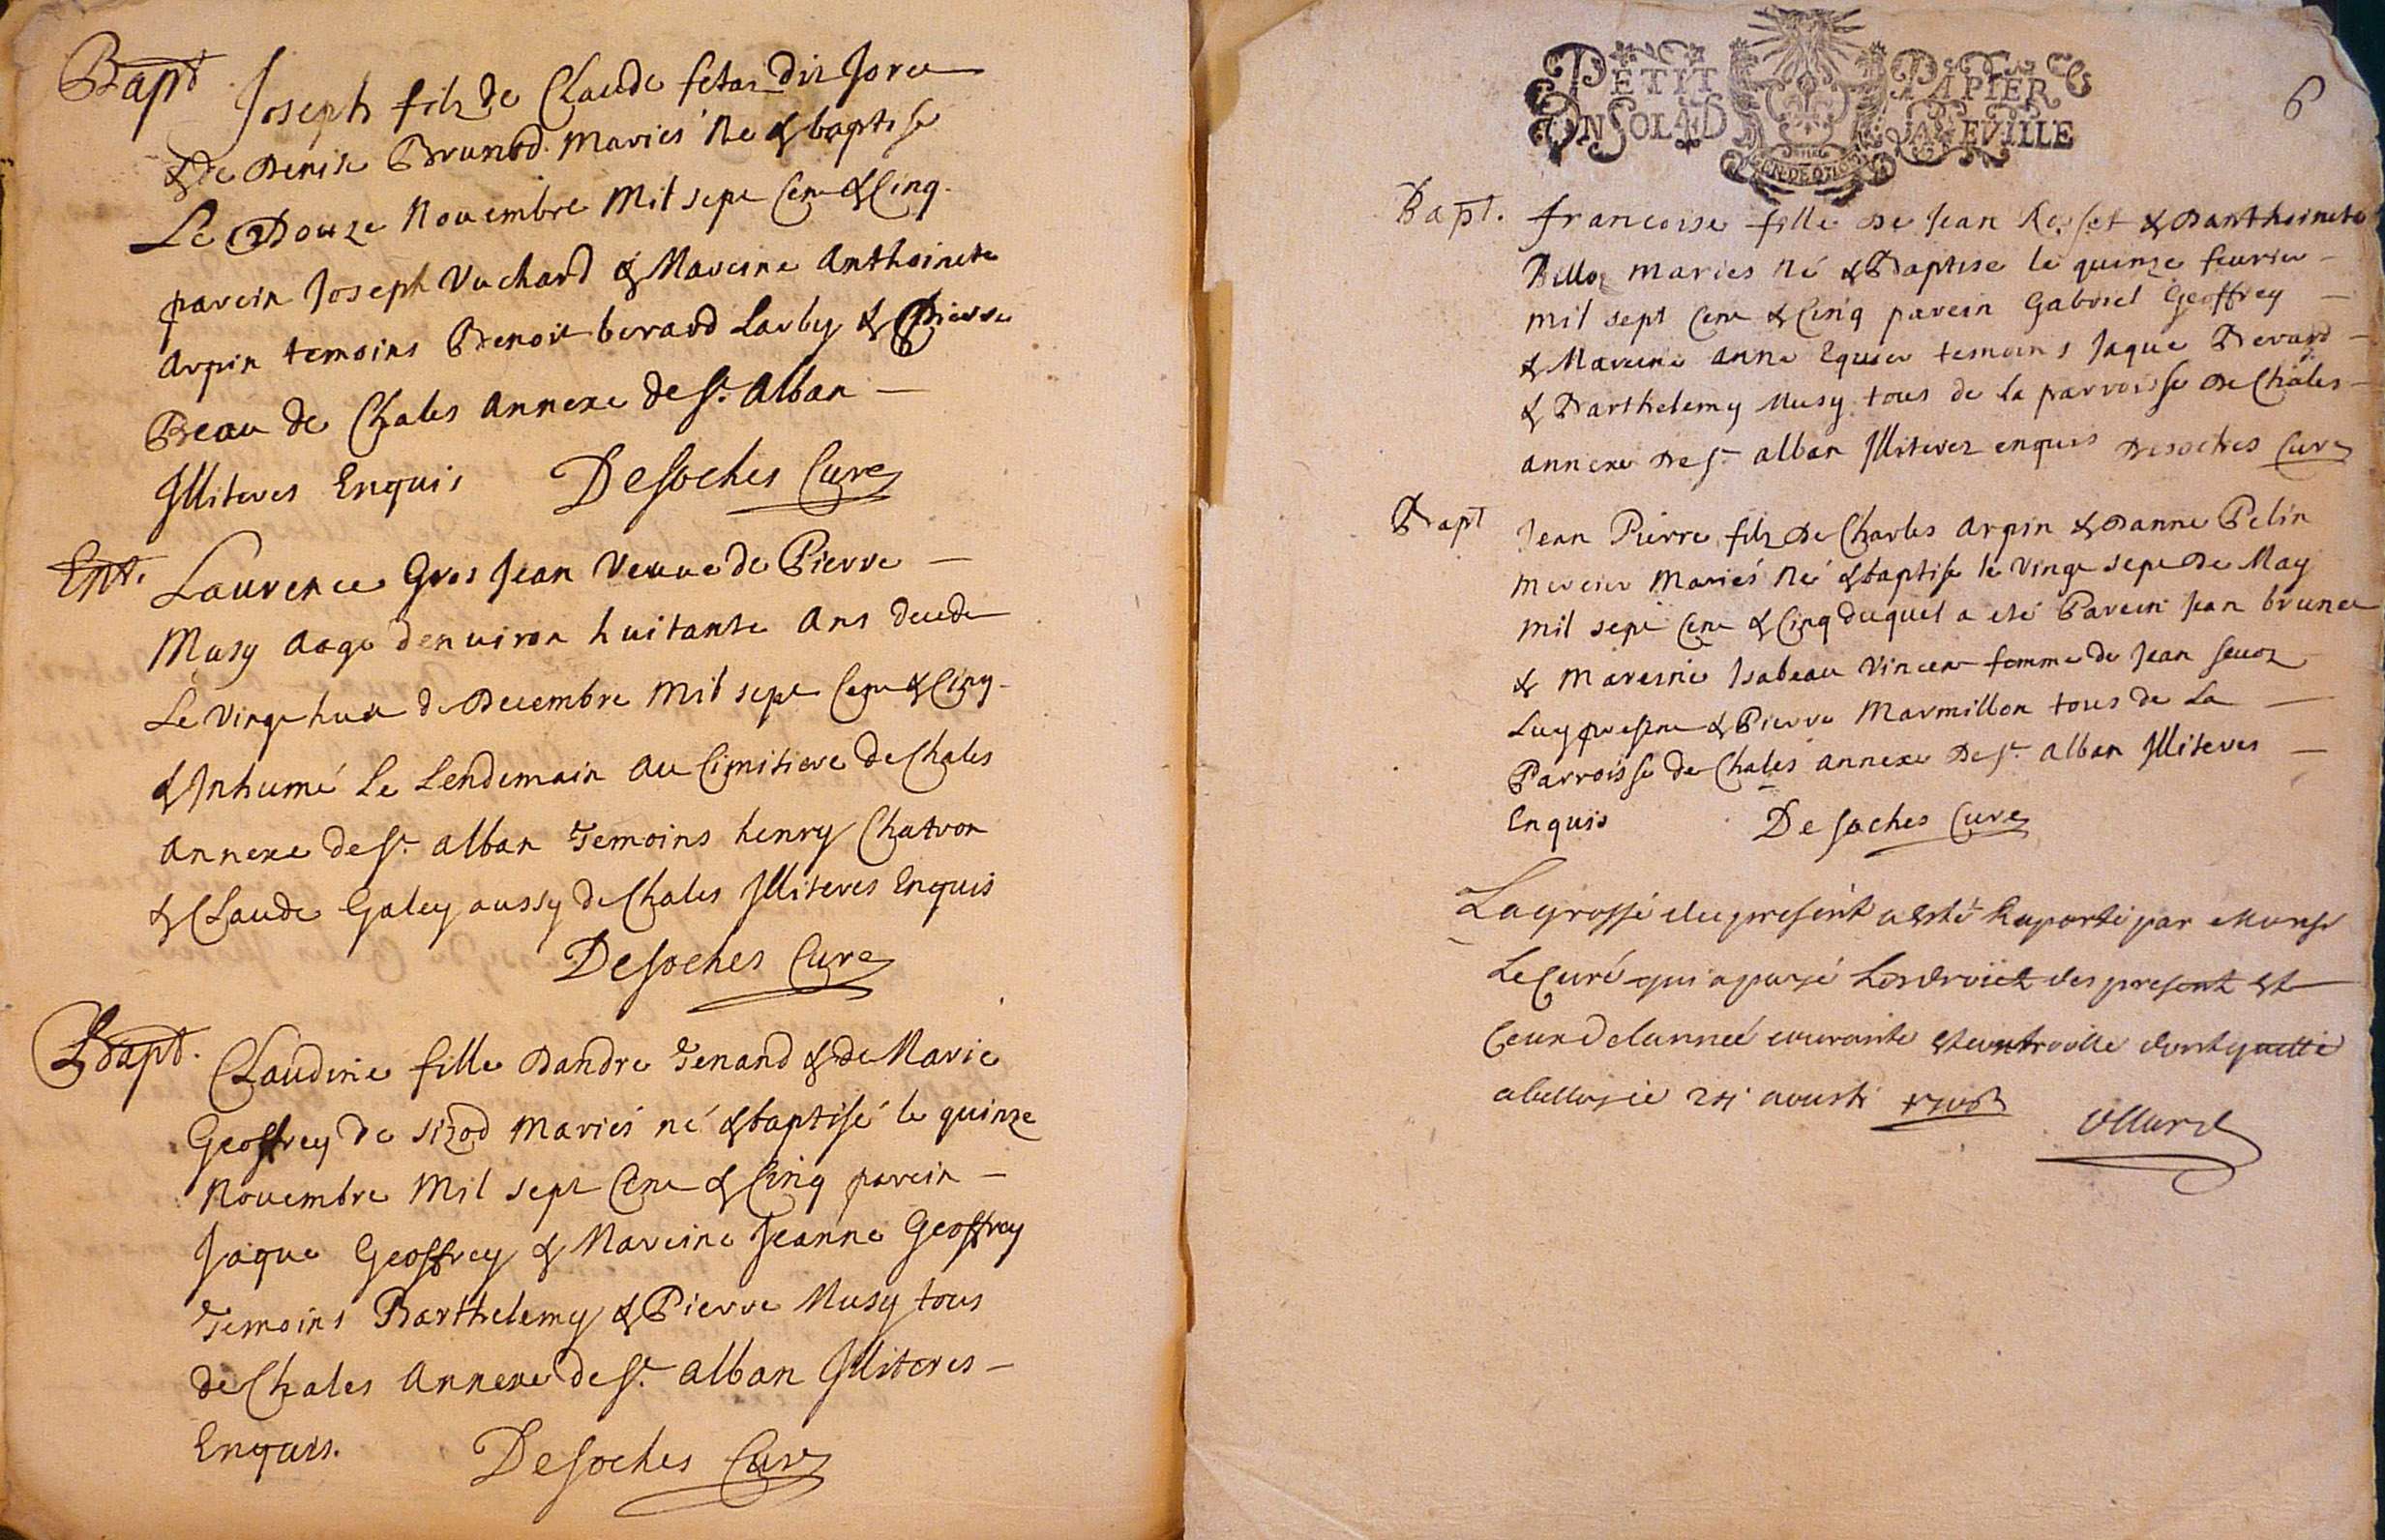 Bapt Joseph fils de Claude fetaz dit Joru
& de Denise Brunod mariés Ne & baptise
Le Douze Novembre Mil sept Cent & Cinq
parein Joseph Vuchard & Mareine Anthoinete
Arpin temoins Benoit berard Larby & Pierre
Beau de Chales Annexe de St. Alban
Illiteres Enquis Desoches Curé
Ent. Laurence Gros Jean Veuve de Pierre
Musy Aage denuiron huitante Ans decede
Le vingt huit de Decembre Mil sept Cent & Cinq
& Inhumé Le Lendemain Au Cimitiere de Chales
Annexe de St. Alban Temoins henry Chatron
& Claude Galey aussy de Chales Illiteres Enquis
Desoches Curé
Bapt. Claudine fille Dandre Tenand & de Marie
Geoffrey de sizod Mariés né & baptisé le quinze
Novembre Mil sept Cent & Cinq parein
Jaque Geoffrey & Mareine Jeanne Geoffrey
Temoins Barthelemy & Pierre Musy tous
de Chales Annexe de St. Alban Illiteres
Enquis. Desoches Curé
6
PETIT PAPIER
UN SOL 4 D LA FEUILLE
Bapt. francoise fille De Jean Rosset & Danthoinete
Billoz mariés Né & Baptise le quinze feurier
mil sept Cent & Cinq parein Gabriel Geoffrey
& Mareine anne Equier temoins Jaque Berard
& Barthelemy Musy tous de la parroisse De Chales
annexe De St alban Illiterez enquis Desoches Curé
Bapt Jean Pierre fils De Charles Arpin & Danne Pelin
mercier Mariés Né & baptisé le vingt sept De May
mil sept Cent & Cinq duquel a eté Parein Jean brunet
& mareine Isabeau Vincent femme de Jean seuoz
Luy present & Pierre Marmillon tous de La
Parroisse de Chales annexe De St alban Illiteres
Enquis Desoches Curé
La grosse du present a esté Raporté par Monsr
Le Curé qui a payé Les droict des present et
Ceux de lannée courante et controolle dont quitte
a belley ce aoust